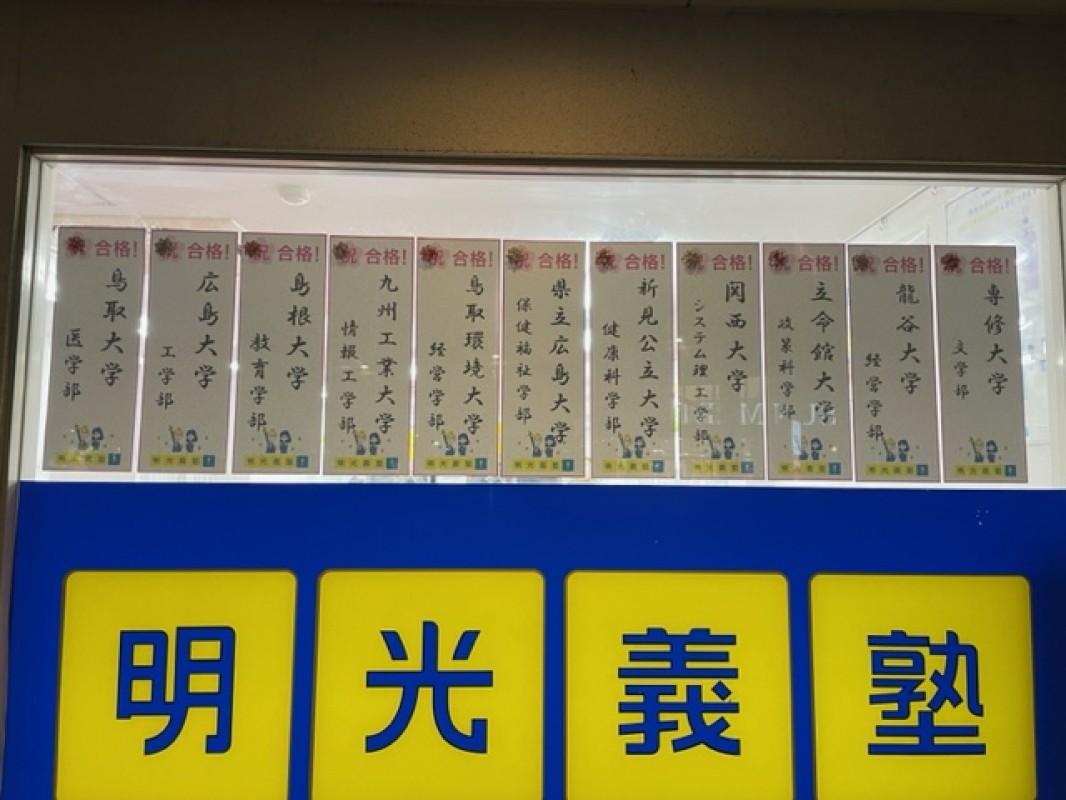 祝 合格!
鳥取大学
医学部
明光義塾
祝 合格!
広島大学
工学部
明光義塾
祝 合格!
島根大学
教育学部
明光義塾
祝 合格!
九州工業大学
情報工学部
明光義塾
祝 合格!
鳥取環境大学
経営学部
明光義塾
祝 合格!
県立広島大学
保健福祉学部
明光義塾
祝 合格!
新見公立大学
健康科学部
明光義塾
祝 合格!
関西大学
システム理工学部
明光義塾
祝 合格!
立命館大学
政策科学部
明光義塾
祝 合格!
龍谷大学
経営学部
明光義塾
祝 合格!
専修大学
文学部
明光義塾
明光義塾